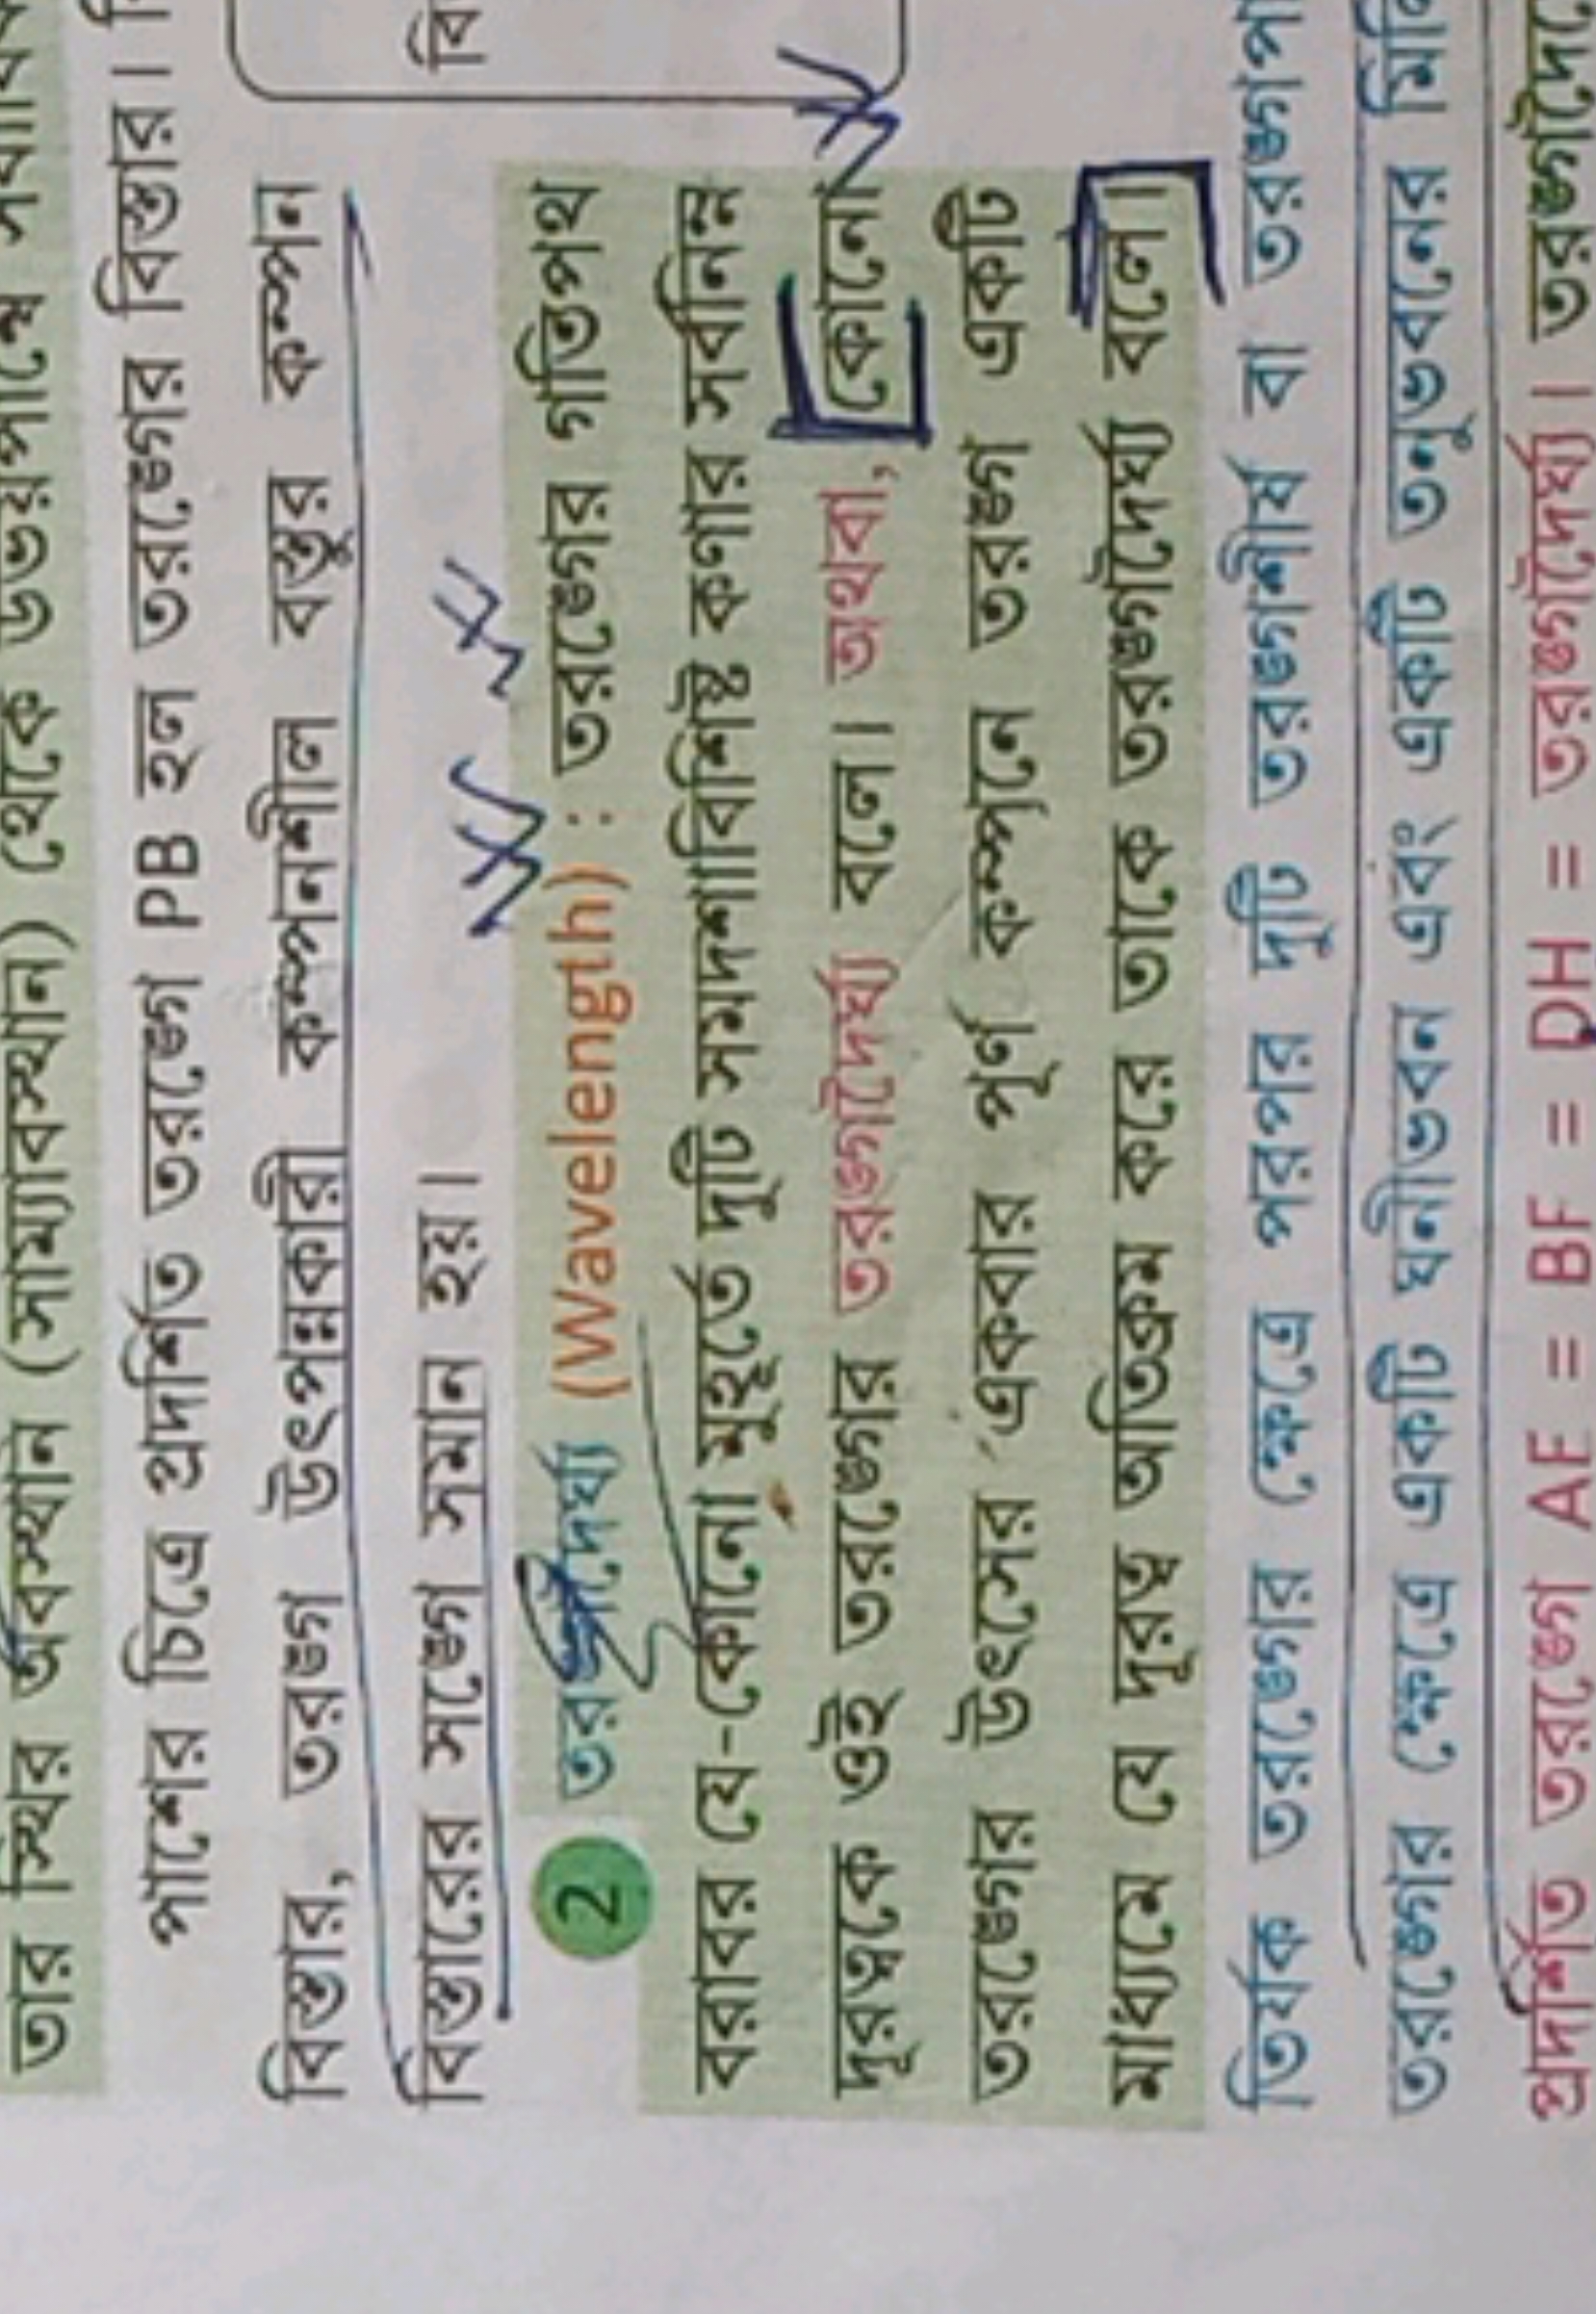 তার স্থির অবস্থান (সাম্যাবস্থান) থেকে উভয়পার্শ্বে
পাশের চিত্রে প্রদর্শিত তরঙ্গে PB হল তরঙ্গের বিস্তার।
বিস্তার, তরঙ্গ উৎপন্নকারী কম্পনশীল বস্তুর কম্পন
বিস্তারের সঙ্গে সমান হয়।
2 তরঙ্গদৈর্ঘ্য (Wavelength) : তরঙ্গের গতিপথ
বরাবর যে-কোনো মুহূর্তে দুটি সমদশাবিশিষ্ট কণার সর্বনিম্ন
দূরত্বকে ওই তরঙ্গের তরঙ্গদৈর্ঘ্য বলে। অথবা, কোনো
তরঙ্গের উৎসের একবার পূর্ণ কম্পনে তরঙ্গ একটি
মাধ্যমে যে দূরত্ব অতিক্রম করে তাকে তরঙ্গদৈর্ঘ্য বলে।
তির্যক তরঙ্গের ক্ষেত্রে পরপর দুটি তরঙ্গশীর্ষ বা তরঙ্গপা
তরঙ্গের ক্ষেত্রে একটি ঘনীভবন এবং একটি তনুভবনের মিলি
প্রদর্শিত তরঙ্গে AE = BF = DH = তরঙ্গদৈর্ঘ্য। তরঙ্গদৈর্ঘ্যে